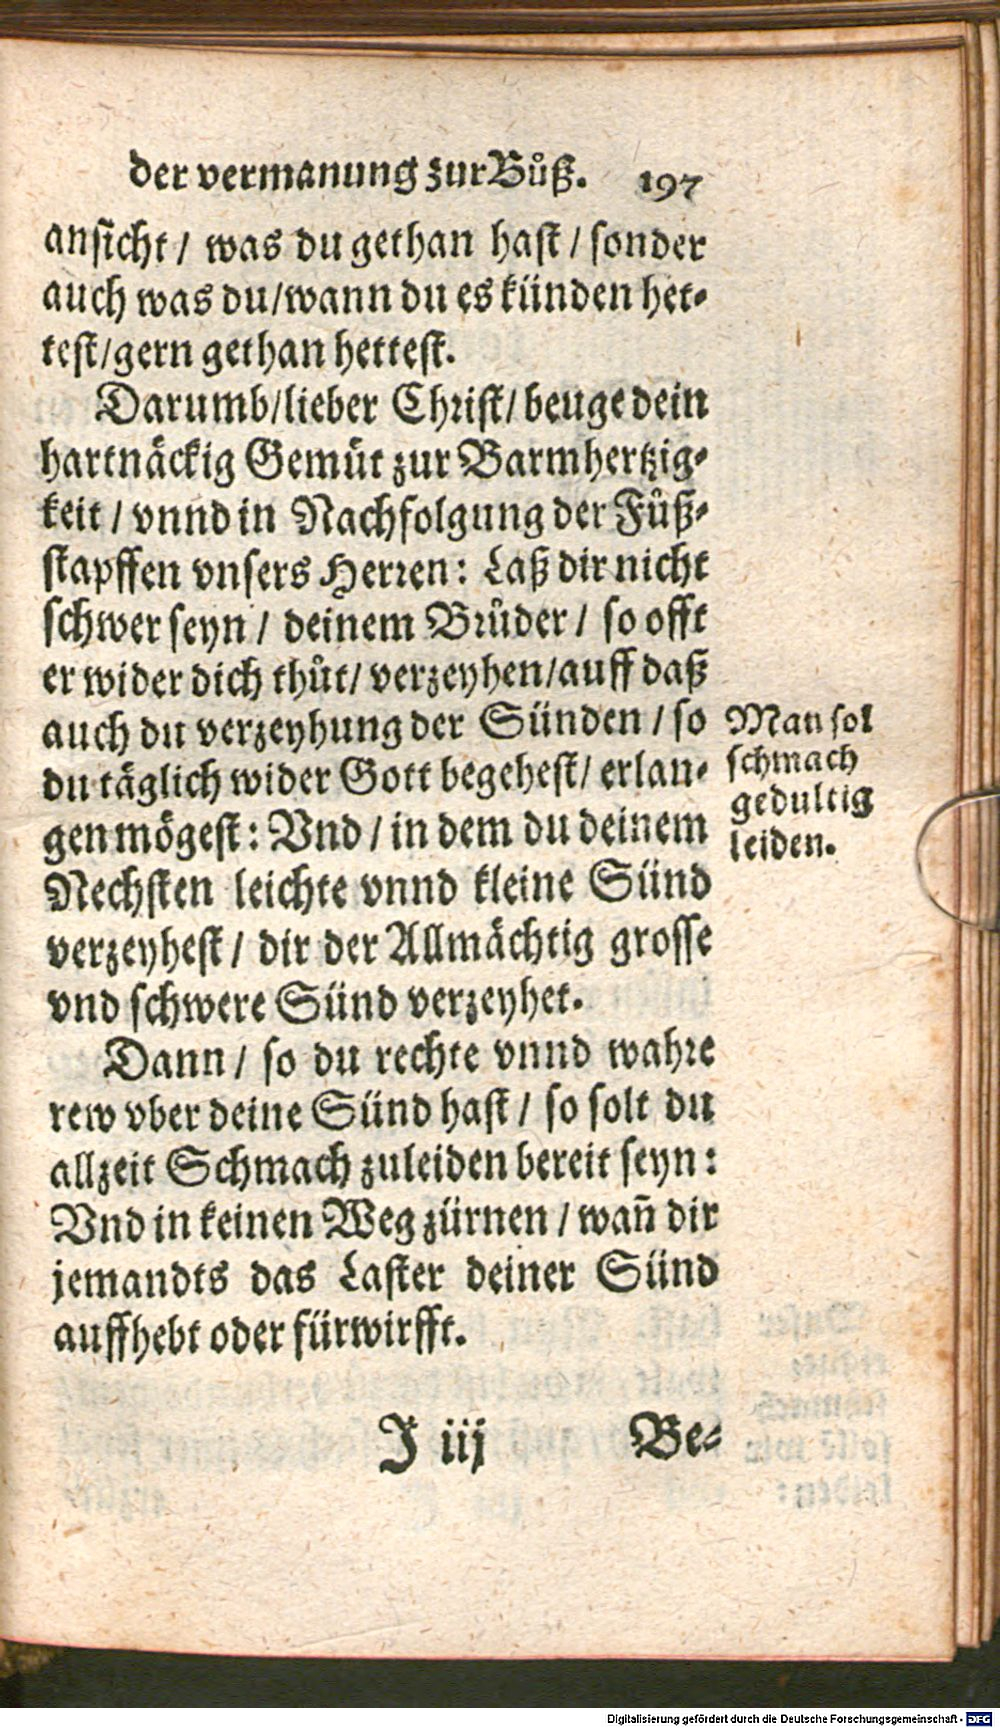 der vermanung zur Bůß. 197
ansicht / was du gethan hast / sonder
auch was du/wann du es künden het-
test/gern gethan hettest.
Darumb/lieber Christ/ beuge dein
hartnäckig Gemüt zur Barmhertzig-
keit / vnnd in Nachfolgung der Fůß-
stapffen vnsers Herren: Laß dir nicht
schwer seyn / deinem Brůder / so offt
er wider dich thůt/ verzeyhen/auff daß
auch du verzeyhung der Sünden / so
du täglich wider Gott begehest/ erlan-
gen mögest: Vnd / in dem du deinem
Nechsten leichte vnnd kleine Sünd
verzeyhest / dir der Allmächtig grosse
vnd schwere Sünd verzeyhet.
Man sol
schmach
gedultig
leiden.
Dann / so du rechte vnnd wahre
rew vber deine Sünd hast / so solt du
allzeit Schmach zuleiden bereit seyn:
Vnd in keinen Weg zürnen / wañ dir
jemandts das Laster deiner Sünd
auffhebt oder fürwirfft.
J iij Be-
Digitalisierung gefördert durch die Deutsche Forschungsgemeinschaft - DFG